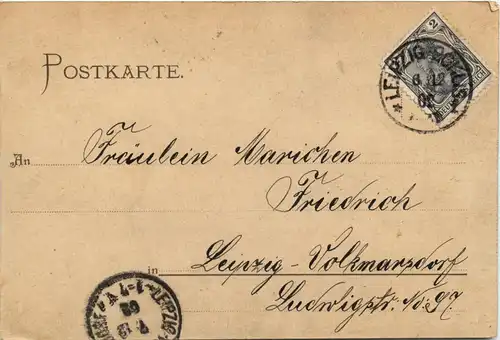 POSTKARTE.
2
LEIPZIG
6 12
02
An Fräulein Marichen
Friedrich
in Leipzig-Volkmarsdorf
Ludwigstr. No: 97.
LEIPZIG
7 12
02